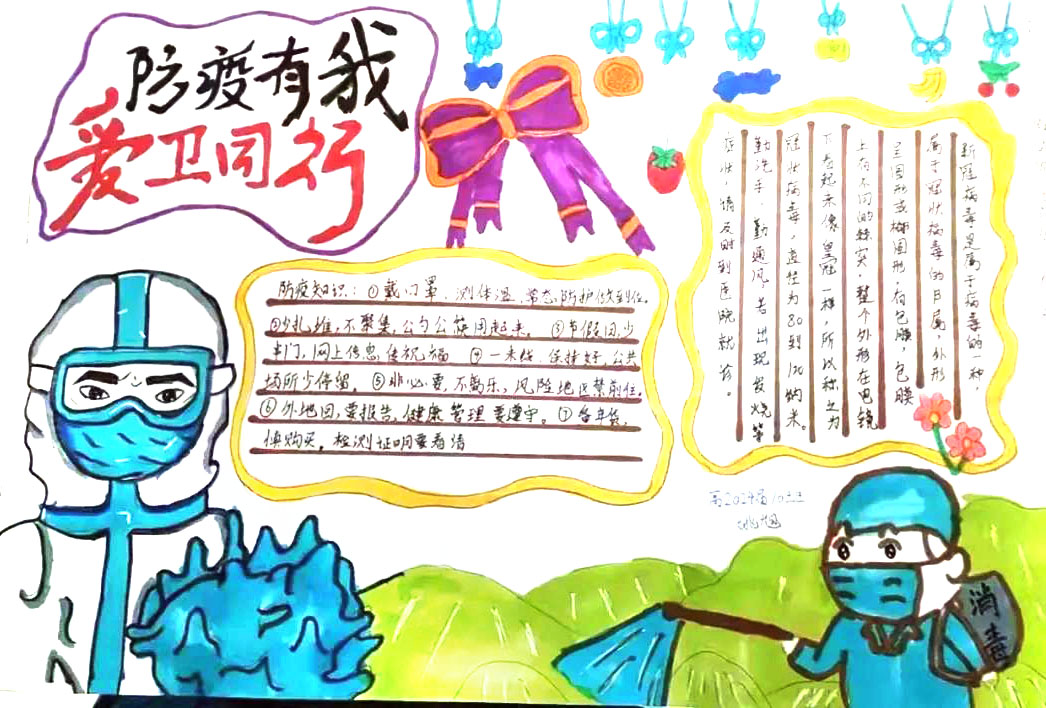 防疫有我
爱卫同行
防疫知识：①戴口罩、测体温、常态防护做到位。
②少扎堆，不聚集，公勺公筷用起来。③节假日少
串门，网上传思传祝福 ④一米线、保持好，公共
场所少停留。⑤非必要，不勤乐，风险地区禁前往。
⑥外地回，要报告，健康管理要遵守。⑦
慎购买，检测证明要看清
新冠病毒是属于病毒的一种，
属于冠状病毒的日属，外形
呈圆形或椭圆形，有包膜，包膜
上有不同的棘突，整个外形在电镜
下看起来像皇冠一样，所以称之为
冠状病毒，直径为80到120纳米。
勤洗手、勤通风，若出现发烧等
症状，请及时到医院就诊。
高2024届
消毒